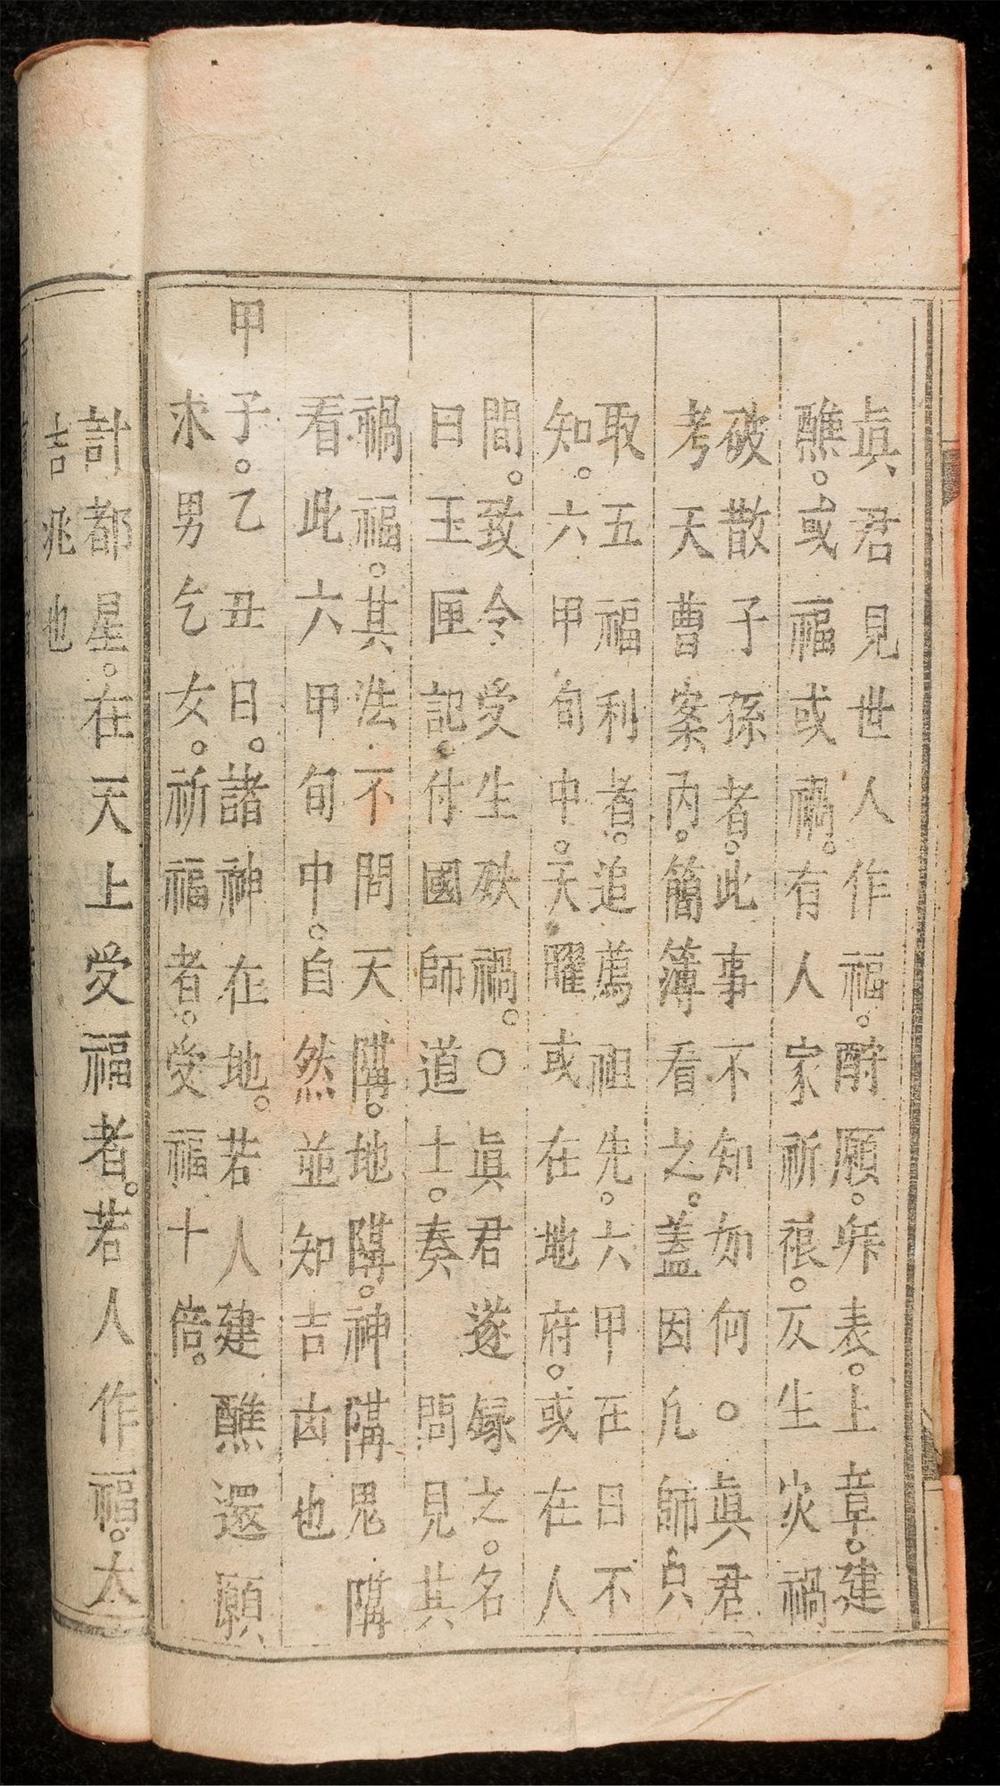 眞君見世人作福。酧願。拜表。上章。建
醮。或福或禍。有人家祈禳。反生灾禍
破散子孫者。此事不知如何○眞君
考天曹案内。簡簿看之。蓋因凢師只
取五福利者。追薦祖先。六甲在日不
知。六甲旬中。天曜或在地府。或在人
間。致令受生殃禍。○眞君遂録之。名
曰玉匣記。付國師道士。奏問見其
禍福。其法不問天𨻶。地𨻶。神𨻶鬼𨻶
看此六甲旬中。自然並知吉凶也
甲子。乙丑日。諸神在地。若人建醮還願
求男乞女。祈福者。受福十倍。
計都星。在天上受福者。若人作福。大
吉兆也